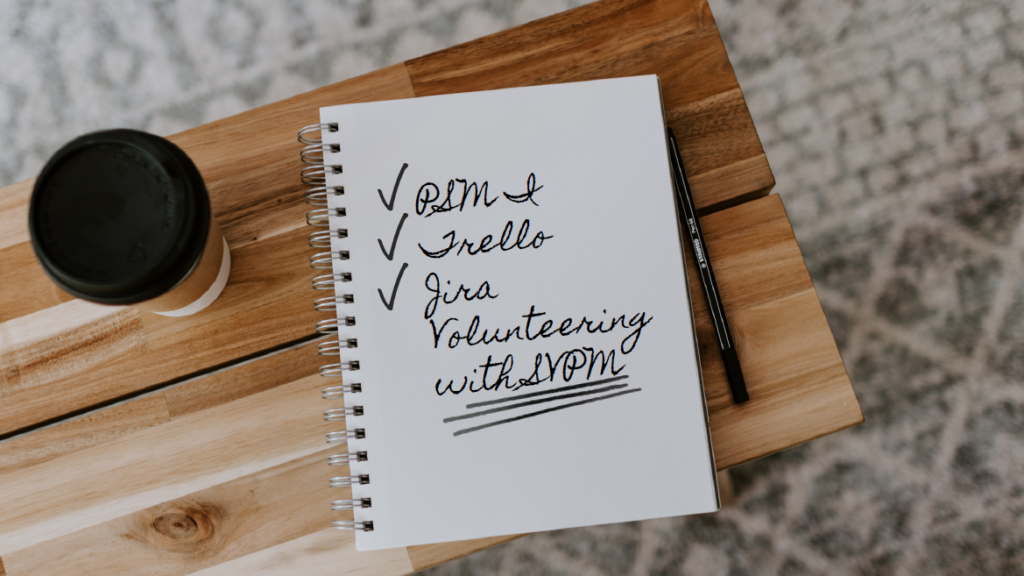 ✓ PSM I
✓ Trello
✓ Jira
Volunteering
with SVPM